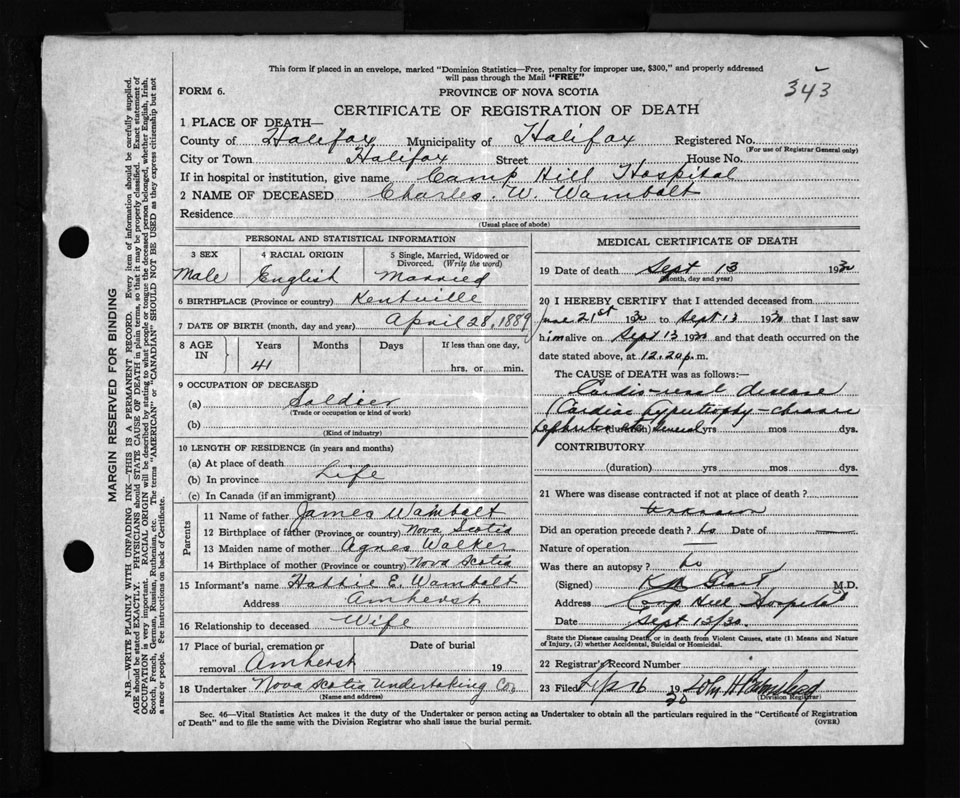 343
This form if placed in an envelope, marked "Dominion Statistics—Free, penalty for improper use, $300," and properly addressed
will pass through the Mail "FREE"
FORM 6.
PROVINCE OF NOVA SCOTIA
CERTIFICATE OF REGISTRATION OF DEATH
1 PLACE OF DEATH—
County of Halifax Municipality of Halifax Registered No.
(For use of Registrar General only)
City or Town Halifax Street House No.
If in hospital or institution, give name Camp Hill Hospital
2 NAME OF DECEASED Charles. W. Wambolt
Residence
(Usual place of abode)
PERSONAL AND STATISTICAL INFORMATION
3 SEX
Male
4 RACIAL ORIGIN
English
5 Single, Married, Widowed or
Divorced. (Write the word)
Married
6 BIRTHPLACE (Province or country) Kentville
7 DATE OF BIRTH (month, day, and year) April 28, 1889
8 AGE
IN
Years
41
Months
Days
If less than one day,
hrs. or min.
9 OCCUPATION OF DECEASED
(a) Soldier
(Trade or occupation or kind of work)
(b)
(Kind of industry)
10 LENGTH OF RESIDENCE (in years and months)
(a) At place of death
(b) In province Life
(c) In Canada (if an immigrant)
Parents
11 Name of father James Wambolt
12 Birthplace of father (Province or country) Nova Scotia
13 Maiden name of mother Agnes Walker
14 Birthplace of mother (Province or country) Nova Scotia
15 Informant's name Hattie E. Wambolt
Address Amherst
16 Relationship to deceased Wife
17 Place of burial, cremation or
removal Amherst
Date of burial
19
18 Undertaker Nova Scotia Undertaking Co,
(Name and address)
MEDICAL CERTIFICATE OF DEATH
19 Date of death Sept 13 1930
(Month, day and year)
20 I HEREBY CERTIFY that I attended deceased from
June 21st 1930 to Sept 13 1930 that I last saw
him alive on Sept 13 1930 and that death occurred on the
date stated above, at 12.20 p.m.
The CAUSE of DEATH was as follows:—
Cardio-renal disease
(Cardiac hypertrophy - chronic
nephritis etc (duration) several yrs mos dys.
CONTRIBUTORY
(duration) yrs mos dys.
21 Where was disease contracted if not at place of death?
Unknown
Did an operation precede death? No Date of —
Nature of operation —
Was there an autopsy? No
(Signed) M.D.
Address Camp Hill Hospital
Date Sept 13/30.
State the Disease causing Death, or in death from Violent Causes, state (1) Means and Nature
of Injury, (2) whether Accidental, Suicidal or Homicidal.
22 Registrar's Record Number
23 Filed Sep 16 1930 John H
(Division Registrar)
Sec. 46—Vital Statistics Act makes it the duty of the Undertaker or person acting as Undertaker to obtain all the particulars required in the "Certificate of Registration
of Death" and to file the same with the Division Registrar who shall issue the burial permit.
(OVER)
MARGIN RESERVED FOR BINDING
N.B.—WRITE PLAINLY WITH UNFADING INK—THIS IS A PERMANENT RECORD. Every item of information should be carefully supplied.
AGE should be stated EXACTLY. PHYSICIANS should STATE CAUSE OF DEATH in plain terms, so that it may be properly classified. Exact statement of
OCCUPATION is very important. RACIAL ORIGIN will be described by stating to what people or tongue the deceased person belonged, whether English, Irish,
Scotch, French, German, Russian, Ruthenian, etc. The terms "AMERICAN" or "CANADIAN" SHOULD NOT BE USED as they express citizenship but not
a race or people. See instructions on back of Certificate.